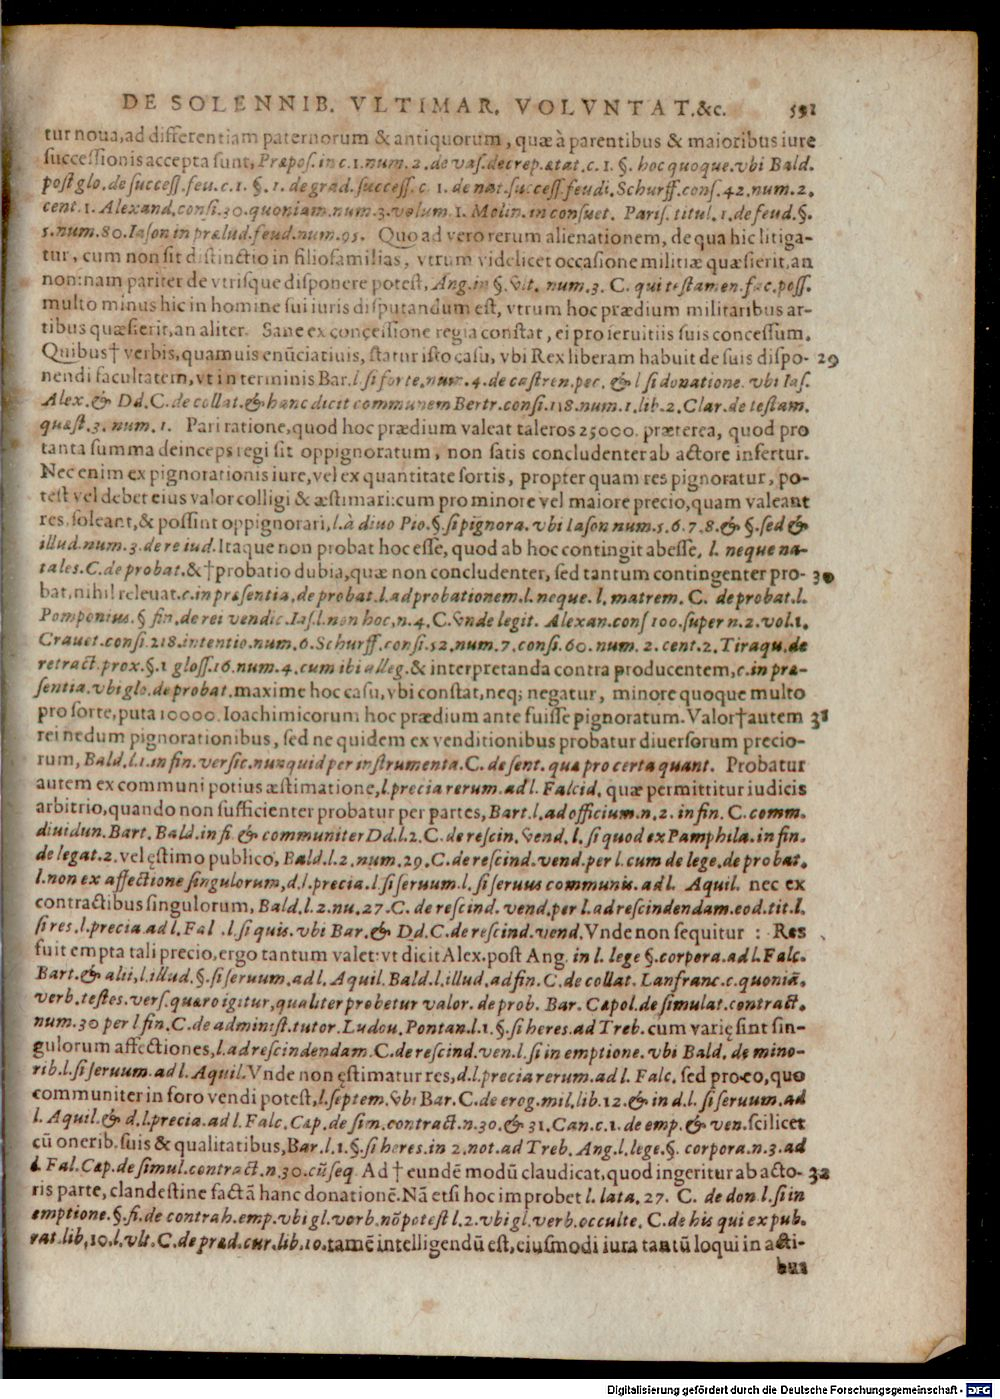 DE SOLENNIB. VLTIMAR. VOLVNTAT.&c. 591
tur noua, ad differentiam paternorum & antiquorum, quæ à parentibus & maioribus iure
successionis accepta sunt, Præpos. in c. 1. num. 2. de vas. decrep. ætat. c. 1. §. hoc quoque. vbi Bald.
post glo. de success. feu. c. 1. §. 1. de grad. success. c. 1. de nat. success. feudi. Schurff. cons. 42. num. 2.
cent. 1. Alexand. consi. 30. quoniam. num. 3. volum. 1. Molin. in consuet. Paris. titul. 1. de feud. §.
5. num. 80. Iason in prælud. feud. num. 95. Quo ad vero rerum alienationem, de qua hic litiga-
tur, cum non sit distinctio in filiofamilias, vtrum videlicet occasione militiæ quæsierit, an
non: nam pariter de vtrisque disponere potest, Ang. in §. vlt. num. 3. C. qui testamen. fac. poss.
multo minus hic in homine sui iuris disputandum est, vtrum hoc prædium militaribus ar-
tibus quæsierit, an aliter. Sane ex concessione regia constat, ei pro seruitiis suis concessum.
Quibus† verbis, quamuis enũciatiuis, statur isto casu, vbi Rex liberam habuit de suis dispo- 29
nendi facultatem, vt in terminis Bar. l. si forte. num. 4. de castren. pec. & l si donatione. vbi Ias.
Alex. & Dd. C. de collat. & hanc dicit communem Bertr. consi. 118. num. 1. lib. 2. Clar. de testam.
quæst. 3. num. 1. Pari ratione, quod hoc prædium valeat taleros 25000. præterea, quod pro
tanta summa deinceps regi sit oppignoratum, non satis concludenter ab actore infertur.
Nec enim ex pignorationis iure, vel ex quantitate sortis, propter quam res pignoratur, po-
test vel debet eius valor colligi & æstimari: cum pro minore vel maiore precio, quam valeant
res, soleant, & possint oppignorari, l. à diuo Pio. §. si pignora. vbi Iason num. 5. 6. 7. 8. & §. sed &
illud. num. 3. de re iud. Itaque non probat hoc esse, quod ab hoc contingit abesse, l. neque na-
tales. C. de probat. & † probatio dubia, quæ non concludenter, sed tantum contingenter pro- 30
bat, nihil releuat. c. in præsentia. de probat. l. ad probationem. l. neque. l. matrem. C. de probat. l.
Pomponius. § fin. de rei vendic. Ias. l. non hoc, n. 4. C. vnde legit. Alexan. cons 100. super n. 2. vol. 1.
Crauet. consi. 218. intentio. num. 6. Schurff. consi. 52. num. 7. consi. 60. num. 2. cent. 2. Tiraqu. de
retract. prox. §. 1 gloss. 16. num. 4. cum ibi alleg. & interpretanda contra producentem, c. in præ-
sentia. vbi glo. de probat. maxime hoc casu, vbi constat, neq; negatur, minore quoque multo
pro sorte, puta 10000. Ioachimicorum hoc prædium ante fuisse pignoratum. Valor † autem 31
rei nedum pignorationibus, sed ne quidem ex venditionibus probatur diuersorum precio-
rum, Bald. l. 1. in fin. versic. nunquid per instrumenta. C. de sent. quæ pro certa quant. Probatur
autem ex communi potius æstimatione, l. precia rerum. ad l. Falcid. quæ permittitur iudicis
arbitrio, quando non sufficienter probatur per partes, Bart. l. ad officium. n. 2. in fin. C. comm.
diuidun. Bart. Bald. in fi. & communiter Dd. l. 2. C. de rescin. vend. l. si quod ex Pamphila. in fin.
de legat. 2. vel ęstimo publico, Bald. l. 2. num. 29. C. de rescind. vend. per l. cum de lege. de probat.
l. non ex affectione singulorum, d. l. precia. l. si seruum. l. si seruus communis. ad l. Aquil. nec ex
contractibus singulorum, Bald. l. 2. nu. 27. C. de rescind. vend. per l. ad rescindendam. eod. tit. l.
si res. l. precia. ad l. Fal. l. si quis. vbi Bar. & Dd. C. de rescind. vend. Vnde non sequitur : Res
fuit empta tali precio, ergo tantum valet: vt dicit Alex. post Ang. in l. lege §. corpora. ad l. Falc.
Bart. & alii, l. illud. §. si seruum. ad l. Aquil Bald. l. illud. ad fin. C. de collat. Lanfranc. c. quoniã.
verb. testes. vers. quæro igitur, qualiter probetur valor. de prob. Bar. Cæpol. de simulat. contract.
num. 30 per l fin. C. de administ. tutor. Ludou. Pontan. l. 1. §. si heres. ad Treb. cum varię sint sin-
gulorum affectiones, l. ad rescindendam. C. de rescind. ven. l. si in emptione. vbi Bald. de mino-
rib. l. si seruum. ad l. Aquil. Vnde non ęstimatur res, d. l. precia rerum. ad l. Falc. sed pro eo, quo
communiter in foro vendi potest, l. septem. vbi Bar. C. de erog. mil. lib. 12. & in d. l. si seruum. ad
l. Aquil. & d. l. precia. ad l. Falc. Cæp. de sim. contract. n. 30. & 31. Can. c. 1. de emp. & ven. scilicet
cũ onerib. suis & qualitatibus, Bar. l. 1. §. si heres. in 2. not. ad Treb. Ang. l. lege. §. corpora. n. 3. ad
l. Fal. Cæp. de simul. contract. n. 30. cũ seq. Ad † eundẽ modũ claudicat, quod ingeritur ab acto- 32
ris parte, clandestine factã hanc donationẽ. Nã etsi hoc improbet l. lata. 27. C. de don. l. si in
emptione. §. fi. de contrah. emp. vbi gl. verb. nõ potest l. 2. vbi gl. verb. occulte. C. de his qui ex pub.
rat. lib. 10. l. vlt. C. de præd. cur. lib. 10. tamẽ intelligendũ est, eiusmodi iura tantũ loqui in acti-
bus
Digitalisierung gefördert durch die Deutsche Forschungsgemeinschaft - DFG